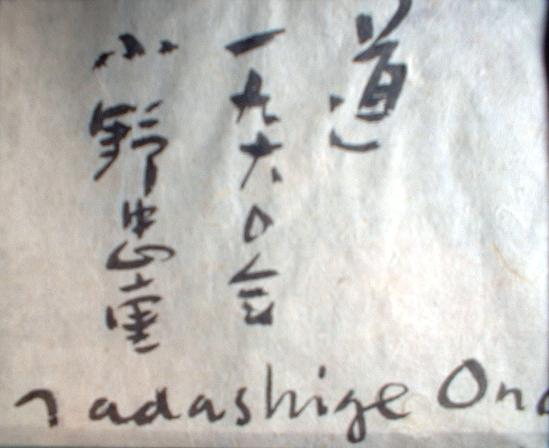 道
一九六〇年
小野忠重
Tadashige Ono